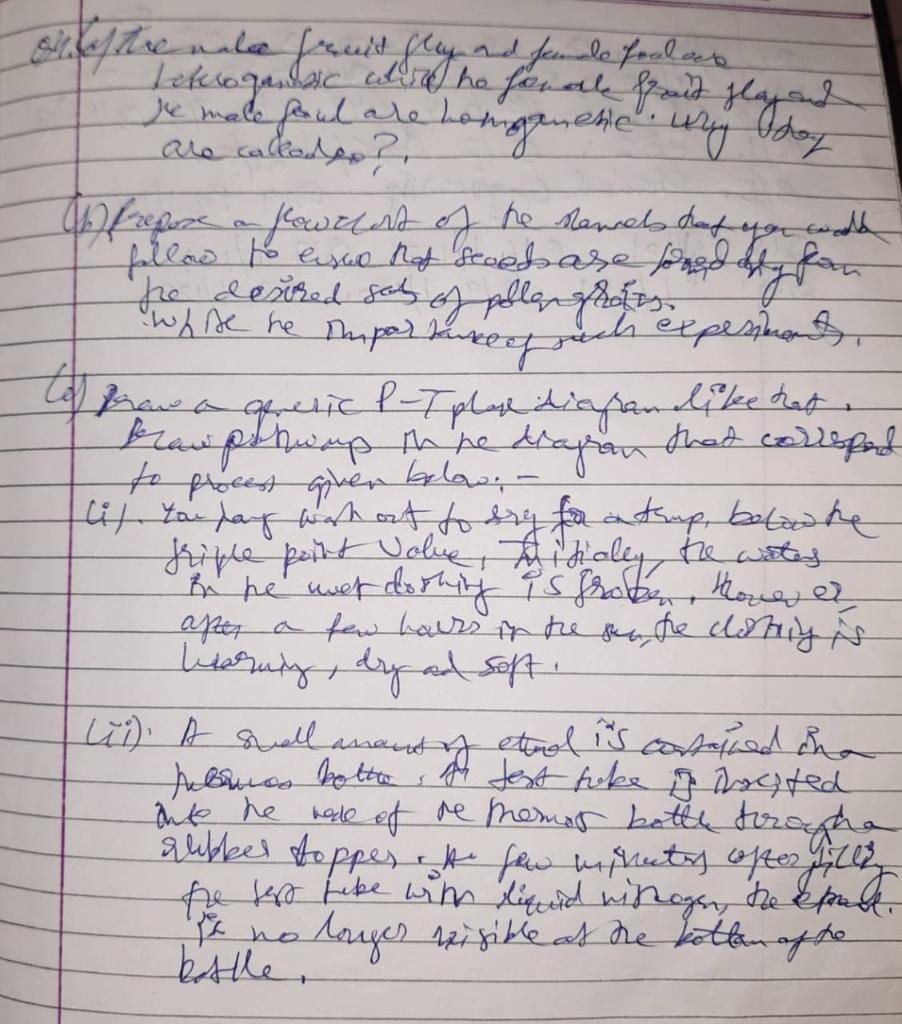 (a) The male fruit fly and female fowl are
heterogametic while he female fruit fly and
he male fowl are homogametic. Why they
are called so?.
(b) Prepare a flowchart of he that you would
follow to ensure that seeds are formed only from
he desired sets of pollen grains.
Write he importance of such experiments.
(c) Draw a generic P-T phase diagram like that.
Draw in he diagram that correspond
to process given below:-
(i). You hang wash out to dry for a temp. below he
triple point value, Initially, the water
in he wet clothing is frozen, However,
after a few hours in the sun, the clothing is
, dry and soft.
(ii). A small amount of ethanol is contained in a
thermos bottle. A test tube is inserted
into he neck of he thermos bottle through a
rubber stopper. A few minutes after filling
the test tube with liquid nitrogen, the
is no longer visible at the bottom of he
bottle.